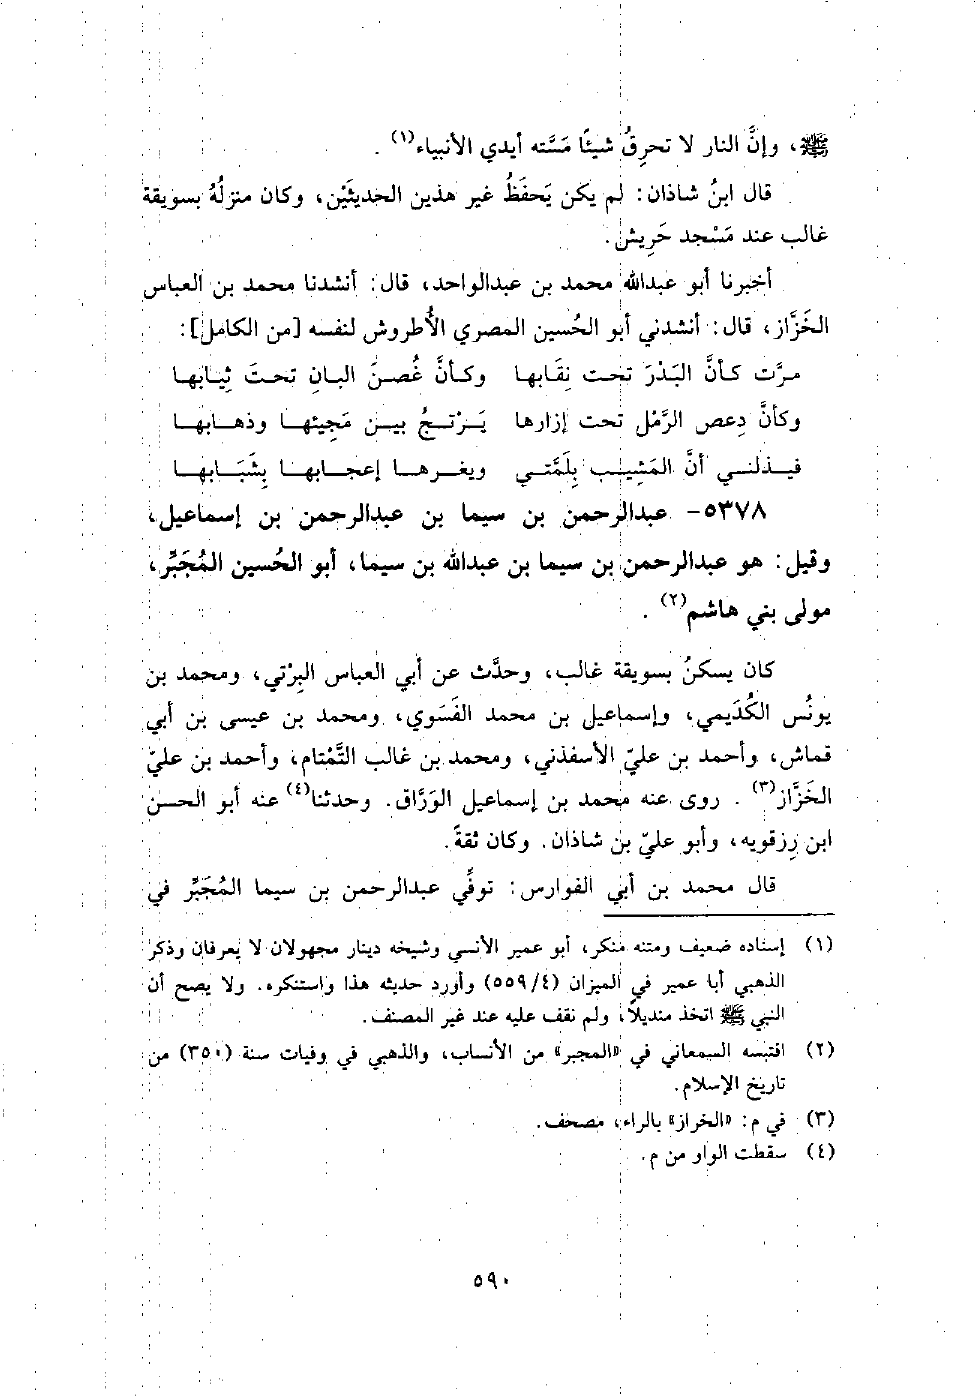 ﷺ، وإنَّ النار لا تحرِقُ شيئًا مَسَّته أيدي الأنبياء(١) .
قال ابنُ شاذان: لم يكن يَحفَظُ غير هذين الحديثَيْن، وكان منزلُهُ بسويقة
غالب عند مَسْجد حَرِيش.
أخبرنا أبو عبدالله محمد بن عبدالواحد، قال: أنشدنا محمد بن العباس
الخَزَّاز، قال: أنشدني أبو الحُسين المصري الأُطروش لنفسه [من الكامل]:
مرَّت كأنَّ البَدْرَ تحت نِقَابها وكأنَّ غُصنَ البانِ تحتَ ثِيَابها
وكأنَّ دِعص الرَّمْل تحت إزارها يَرْتجُ بين مَجِيئها وذهابها
فيذلني أنَّ المَشِيب بِلَمَّتي ويغرها إعجابها بِشَبَابها
٥٣٧٨- عبدالرحمن بن سيما بن عبدالرحمن بن إسماعيل،
وقيل: هو عبدالرحمن بن سيما بن عبدالله بن سيما، أبو الحُسين المُجَبِّر،
مولى بني هاشم(٢) .
كان يسكنُ بسويقة غالب، وحدَّث عن أبي العباس البِرْتي، ومحمد بن
يونُس الكُدَيمي، وإسماعيل بن محمد الفَسَوي، ومحمد بن عيسى بن أبي
قماش، وأحمد بن عليّ الأسفذني، ومحمد بن غالب التَّمْتام، وأحمد بن عليّ
الخَزَّاز(٣) . روى عنه محمد بن إسماعيل الوَرَّاق. وحدثنا(٤) عنه أبو الحسن
ابن رِزقويه، وأبو عليّ بن شاذان. وكان ثقةً.
قال محمد بن أبي الفوارس: توفِّي عبدالرحمن بن سيما المُجَبِّر في
(١) إسناده ضعيف ومتنه منكر، أبو عمير الأنسي وشيخه دينار مجهولان لا يعرفان وذكر
الذهبي أبا عمير في الميزان (٤/ ٥٥٩) وأورد حديثه هذا واستنكره. ولا يصح أن
النبي ﷺ اتخذ منديلاً، ولم نقف عليه عند غير المصنف.
(٢) اقتبسه السمعاني في «المجبر» من الأنساب، والذهبي في وفيات سنة (٣٥٠) من
تاريخ الإسلام.
(٣) في م: «الخراز» بالراء، مصحف.
(٤) سقطت الواو من م.
٥٩٠